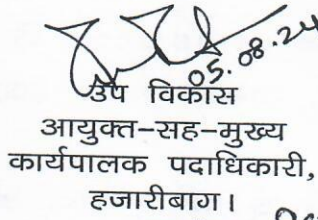 05.08.24
उप विकास
आयुक्त-सह-मुख्य
कार्यपालक पदाधिकारी,
हजारीबाग।